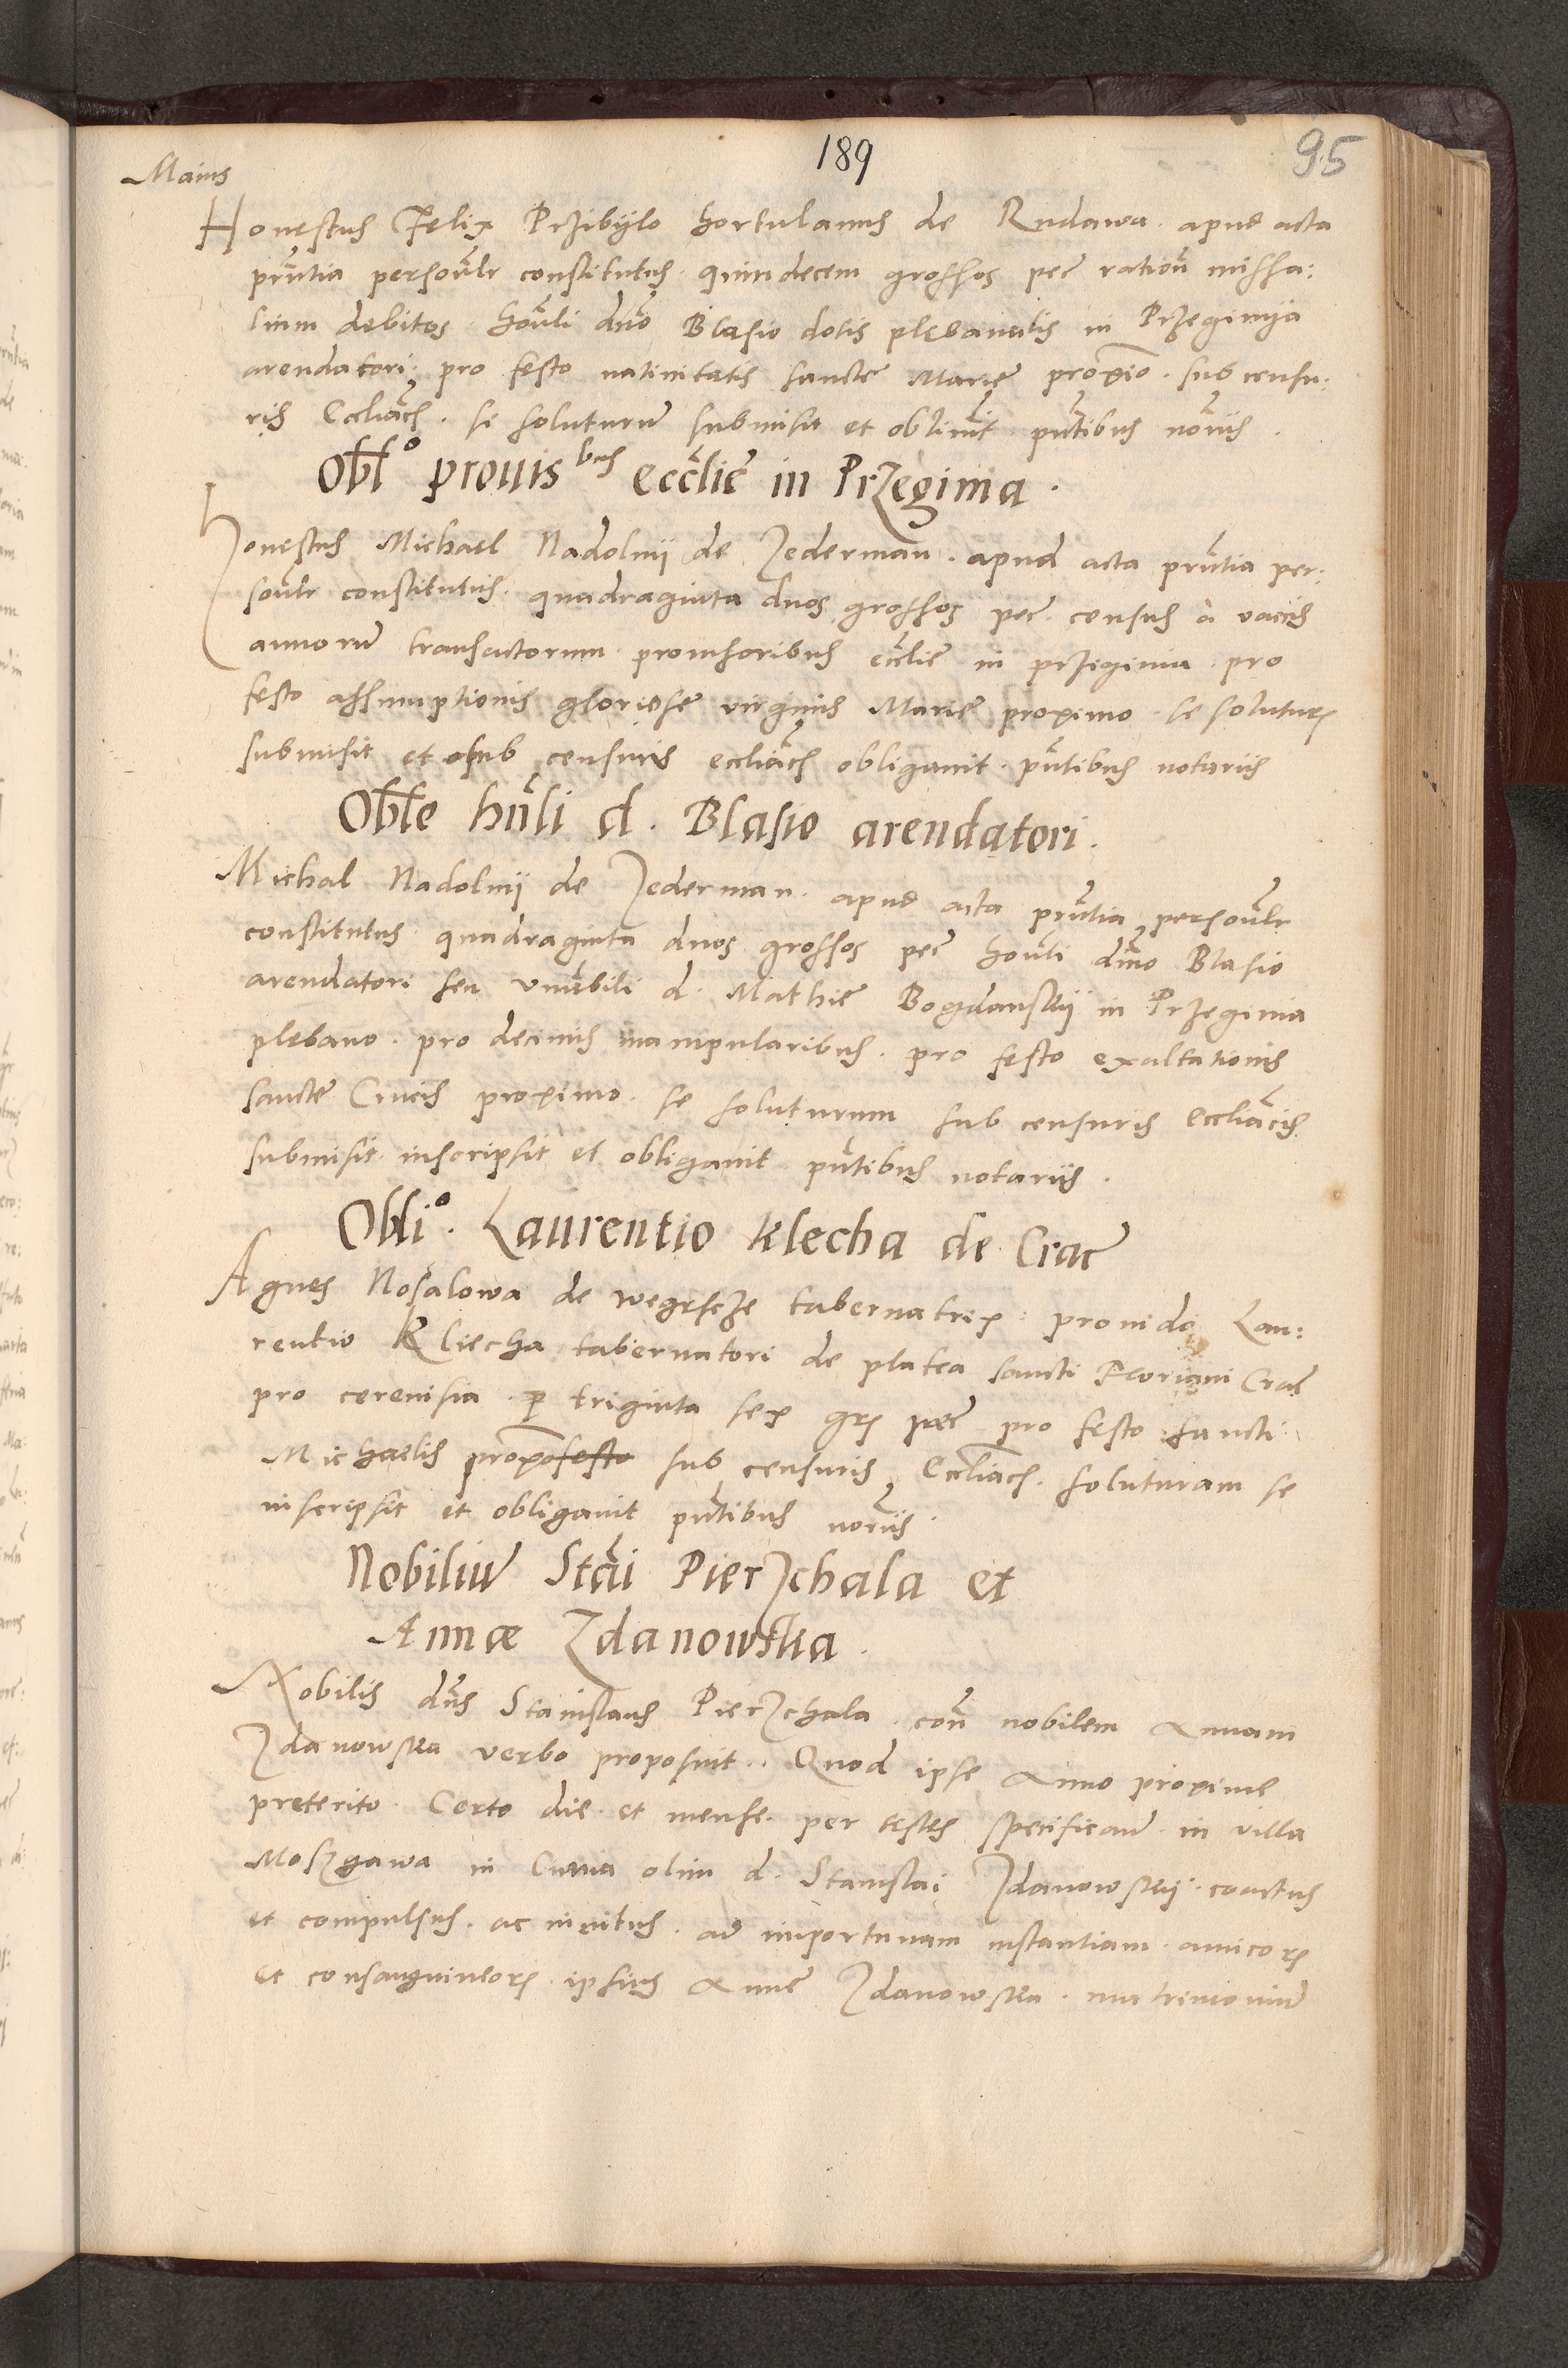 189
95
Maius
Honestus Felix Przibÿlo hortulanus de Rudawa. apud acta
pn̄tia person̄lr constitutus. quindecem grossos pec̄ ration̄ missa:
lium debitos. Hon̄li dn̄o Blasio dotis plebanalis in Przeginÿa
arendatori. pro festo nativitatis sancte Marie proxīo. sub censu:
ris Eccliāch. se soluturū submisit et oblīuit pn̄tibus no͞riis.
Obl͞o provisbus ecc̄lie in Przeginia.
Honestus Michael Nadolnÿ de Zederman. apud acta prn̄tia per:
son̄lr constitutus. quadraginta duos grossos pec̄. census a vaccis
annorū transactorum. provisoribus eccl̄ie in przeginia. pro
festo assumptionis gloriose virginis Marie proximo. se soluturꝝ
submisit et sub censuris eccliāch obligauit. pn̄tibus notariis
Obl͞e hn̄li d. Blasio arendatori.
Michal Nadolnÿ de Zederman. apud acta prn̄tia person̄lr
constitutus. quadraginta duos grossos pec̄ hon̄li dn̄o Blasio
arendatori seu vene͞bili d. Mathie Bogdanskÿ in Przeginia
plebano. pro decimis manipularibus. pro festo exaltationis
sancte Crucis proximo. se soluturum sub censuris Eccliācis
submisit inscripsit et obligauit pn̄tibus notariis.
Oblio. Laurentio Klecha de Crac̄
Agnes Nosalowa de wegrscze tabernatrix. provido Lau:
rentio Kliecha tabernatori de platea sancti Floriani Crac̄
pro cerevisia. ꝑ triginta sex grꝝ pec̄ pro festo sancti
Michaelis prox͞o festo sub censuris Eccliāch. soluturam se
inscripsit et obligauit pn̄tibus noriis.
Nobiliū Stāi Pierzchala et
Annæ Zdanowska.
Nobilis dn̄s Stanislaus Pierzchala. con̄ nobilem Annam
Zdanowska verbo proposuit.. Quod ipse Anno proxime
preterito. Certo die et mense. per testes specificand̄. in villa
Moszgawa in Curia olim d. Stanislai Zdanowskÿ. coactus
et compulsus. ac invitus. ad importunam instantiam. amicorꝝ
et consanguineorꝝ. ipsius Anne Zdanowska. matrimoniū